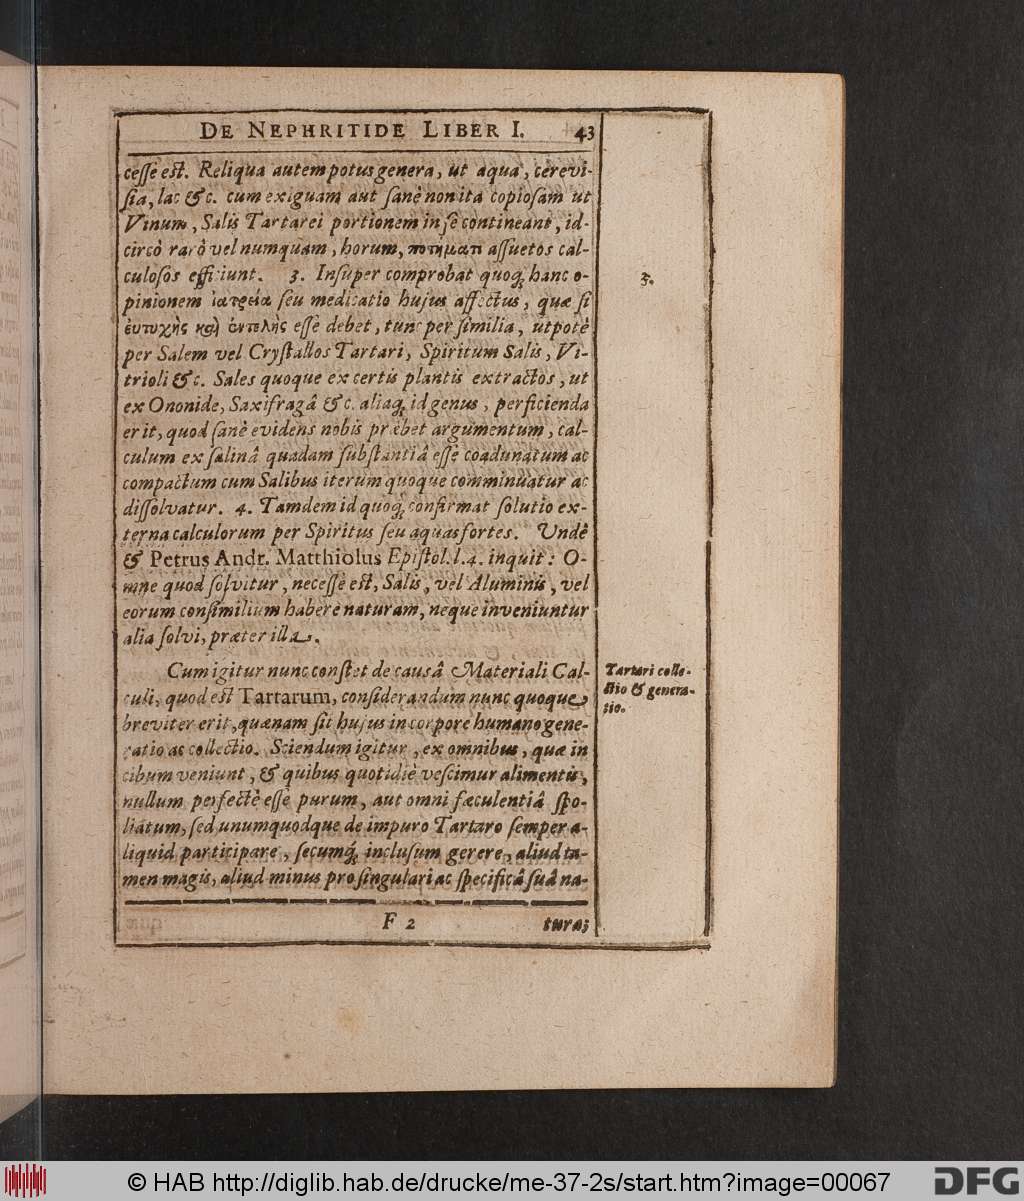 DE NEPHRITIDE LIBER I. 43
cesse est. Reliqua autem potus genera, ut aqua, cerevi-
sia, lac &c. cum exiguam aut sanè non ita copiosam ut
Vinum, Salis Tartarei portionem in se contineant, id-
circò rarò vel numquam, horum, ποτήματι assuetos cal-
culosos efficiunt. 3. Insuper comprobat quoq; hanc o-
pinionem ἰατρεία seu medicatio hujus affectus, quæ si
ἐυτυχὴς καὶ ἐντελὴς esse debet, tunc per similia, utpotè
per Salem vel Crystallos Tartari, Spiritum Salis, Vi-
trioli &c. Sales quoque ex certis plantis extractos, ut
ex Ononide, Saxifragâ &c. aliaq; id genus, perficienda
erit, quod sanè evidens nobis præbet argumentum, cal-
culum ex salinâ quadam substantiâ esse coadunatum ac
compactum cum Salibus iterum quoque comminuatur ac
dissolvatur. 4. Tamdem id quoq; confirmat solutio ex-
terna calculorum per Spiritus seu aquas fortes. Undè
& Petrus Andr. Matthiolus Epistol. l. 4. inquit: O-
mne quod solvitur, necesse est, Salis, vel Aluminis, vel
eorum consimilium habere naturam, neque inveniuntur
alia solvi, præter illa.
3.
Cum igitur nunc constet de causâ Materiali Cal-
culi, quod est Tartarum, considerandum nunc quoque
breviter erit, quænam sit hujus in corpore humano gene-
ratio ac collectio. Sciendum igitur, ex omnibus, quæ in
cibum veniunt, & quibus quotidiè vescimur alimentis,
nullum perfectè esse purum, aut omni fæculentiâ spo-
liatum, sed unumquodque de impuro Tartaro semper a-
liquid participare, secumq; inclusum gerere, aliud ta-
men magis, aliud minus pro singulari ac specificâ suâ na-
Tartari colle-
ctio & genera-
tio.
F 2 tura;
© HAB http://diglib.hab.de/drucke/me-37-2s/start.htm?image=00067
DFG